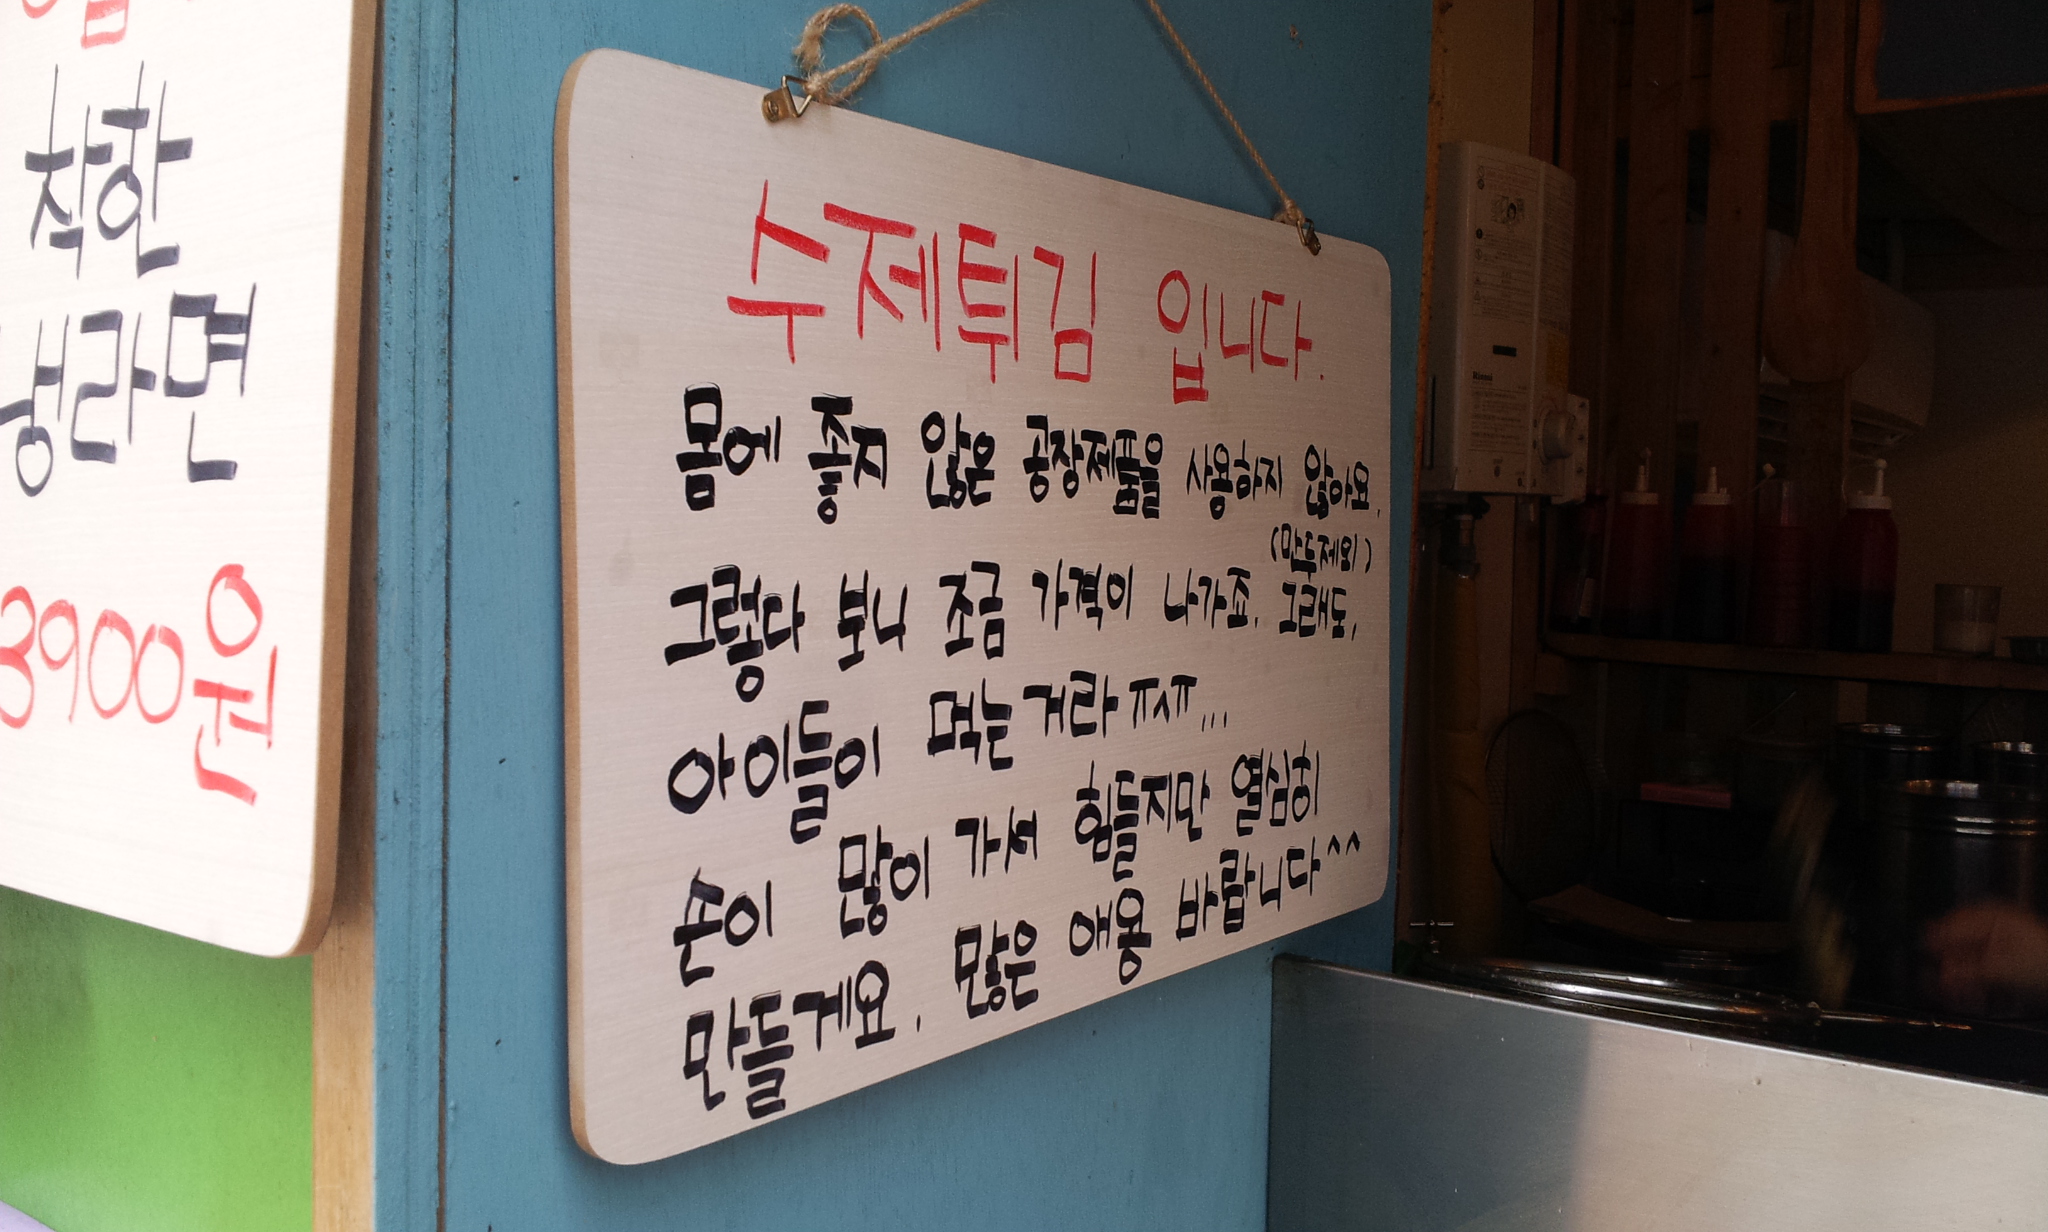 착한
냉라면
3900원
수제튀김 입니다.
몸에 좋지 않은 공장제품을 사용하지 않아요.
(만두제외)
그렇다 보니 조금 가격이 나가죠. 그래도,
아이들이 먹는거라 ㅠㅅㅠ...
손이 많이 가서 힘들지만 열심히
만들게요. 많은 애용 바랍니다^^
Rinnai